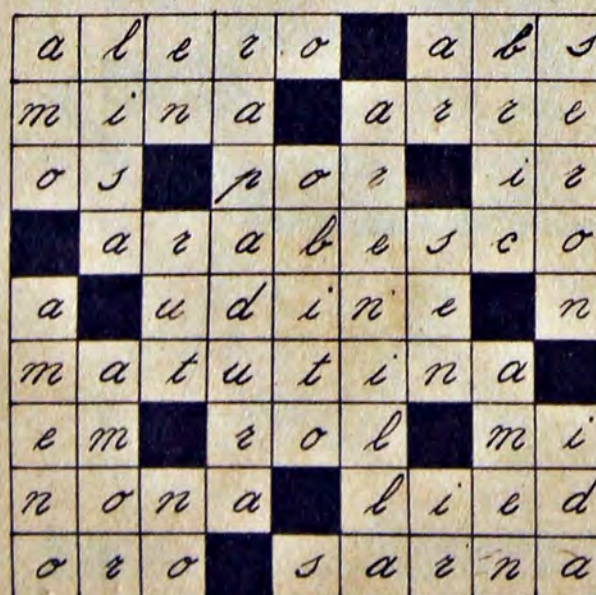 alero abs
mina arre
os por ir
arabesco
a udine n
matutina
em rol mi
nona lied
oro sarna